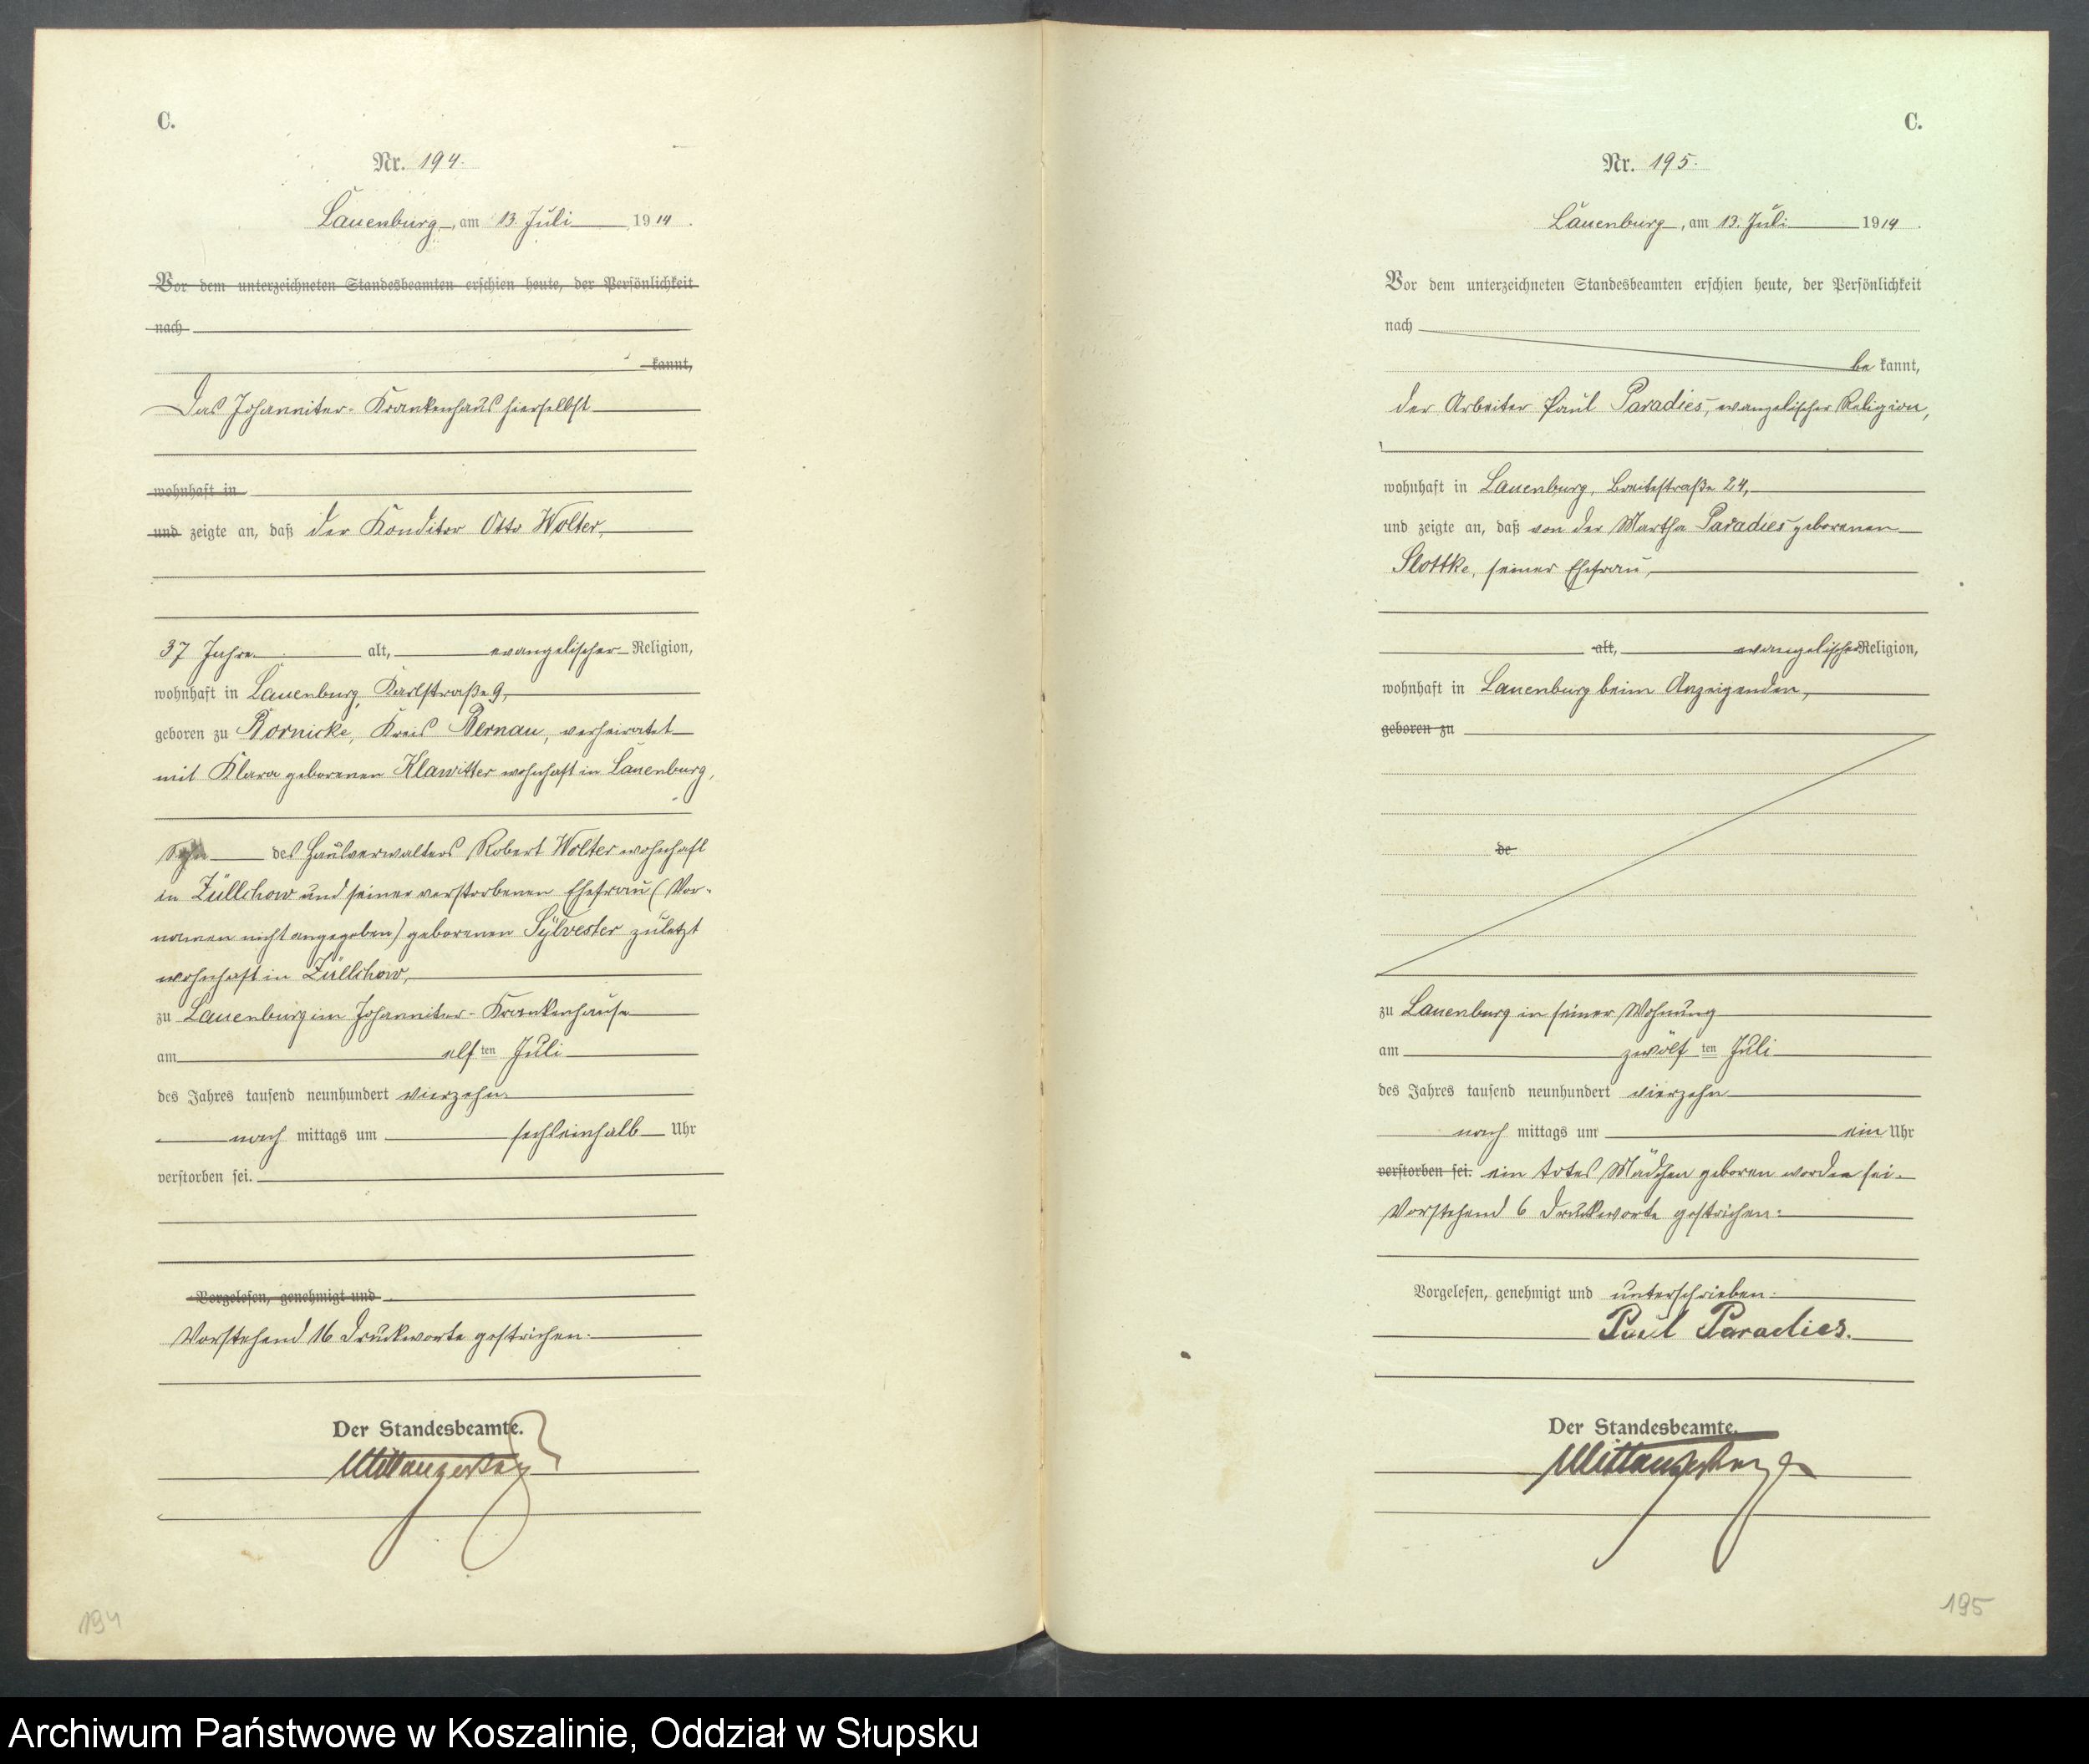 C.
Nr. 194.
Lauenburg, am 13. Juli 1914.
Vor dem unterzeichneten Standesbeamten erschien heute, der Persönlichkeit
nach
kannt,
Das Johanniter-Krankenhaus hierselbst
wohnhaft in
und zeigte an, daß der Konditor Otto Wolter,
37 Jahre alt, evangelischer Religion,
wohnhaft in Lauenburg, Karlstraße 9,
geboren zu Bornicke, Kreis Bernau, verheiratet
mit Klara geborenen Klawitter wohnhaft in Lauenburg,
Sohn des Hausverwalters Robert Wolter wohnhaft
in Züllchow und seiner verstorbenen Ehefrau (Vor-
namen nicht angegeben) geborenen Sylvester zuletzt
wohnhaft in Züllchow,
zu Lauenburg im Johanniter-Krankenhause
am elf ten Juli
des Jahres tausend neunhundert vierzehn
nach mittags um sechseinhalb Uhr
verstorben sei.
Vorgelesen, genehmigt und
Vorstehend 16 Druckworte gestrichen.
Der Standesbeamte.
194
C.
Nr. 195.
Lauenburg, am 13. Juli 1914.
Vor dem unterzeichneten Standesbeamten erschien heute, der Persönlichkeit
nach
be kannt,
der Arbeiter Paul Paradies, evangelischer Religion,
wohnhaft in Lauenburg, Breitestraße 24,
und zeigte an, daß von der Martha Paradies geborenen
Slottke, seiner Ehefrau,
alt, evangelischer Religion,
wohnhaft in Lauenburg beim Anzeigenden,
geboren zu
de
zu Lauenburg in seiner Wohnung
am zwölf ten Juli
des Jahres tausend neunhundert vierzehn
nach mittags um ein Uhr
verstorben sei. ein totes Mädchen geboren worden sei.
Vorstehend 6 Druckworte gestrichen.
Vorgelesen, genehmigt und unterschrieben.
Paul Paradies.
Der Standesbeamte.
195
Archiwum Państwowe w Koszalinie, Oddział w Słupsku